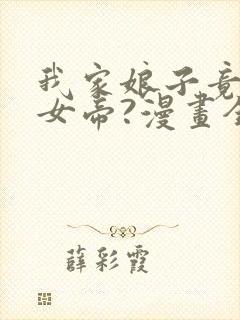 我家娘子竟
女帝?漫畫全
薛彩霞